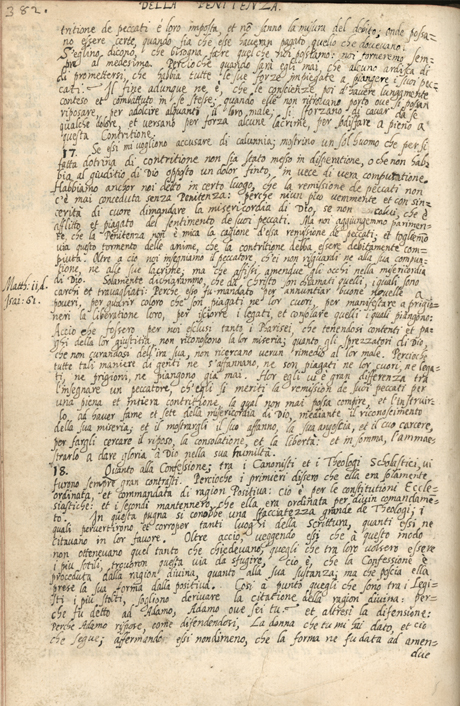 382.
DELLA PENITENZA.
tritione de peccati è loro imposta, et nõ sanno la misura del debito; onde possa-
no essere certe, quando sia che esse havran pagato quello che dovevano.
S'eglino, dicono, che bisogna fare quel che noi possiamo: noi torneremo sem-
pre al medesimo. Percioche quando sarà egli mai, che alcuno ardisca di
di promettersi, che habbia tutte le sue forze impiegate a piangere i suoi pec-
cati. Il fine adunque ne, è, che le conscienze, poi d'havere lungamente
conteso et combattuto in se stesse; quando esse non ritrovano porto ove si possan
riposare, per adolcire almanco il loro male; si forzano di cavar da se
qualche dolore, et versano per forza alcune lacrime, per edificare a pieno a
questa Contritione.
17. Se essi mi vogliono accusare di calunnia; mostrino un sol huomo che per si
fatta dottrina di contritione non sia stato messo in disperatione, o che non hab-
bia al giuditio di Dio opposto un dolor finto, in vece di vera compuntione.
Habbiamo anchor noi detto in certo luogo, che la remissione de peccati non
c'è mai conceduta senza Penitenza: perche niun può veramente et con sin-
cerità di cuore dimandare la misericordia di Dio, se non colui, che è
afflitto et piagato del sentimento de suoi peccati. Ma noi aggiugnemmo parimen-
te, che la Penitenza non è mica la cagione d'essa remissione de peccati; et togliemmo
via questo tormento delle anime, che la contritione debba essere debitamente com-
piuta. Oltre a ciò noi insegniamo al peccatore, ch'ei non riguardi ne alla sua compun-
tione, ne alle sue lacrime, ma che affisi, amendue gli occhi nella misericordia
di Dio. Solamente dichiarammo, che da Christo son chiamati quelli, i quali sono
Matth: 11.d.
Isai: 61.
carchi et travagliati: Perche esso fu mandato per annuntiar buone novelle a
poveri, per guarir coloro che son piagati ne' lor cuori, per manifestare a prigio-
neri la liberatione loro, per isciorre i legati, et consolare quelli i quali piangono:
Acciò che fossero per noi esclusi tanto i Farisei, che tenendosi contenti et pa-
ghi della lor giustitia, non riconoscono la lor miseria; quanto gli sprezzatori di Dio,
che non curandosi dell'ira sua, non ricercano verun rimedio al lor male. Percioche
tutte tali maniere di genti ne s'affannano, ne son piagati ne lor cuori, ne lega-
ti, ne prigioni, ne piangono già mai. Hor egli vi è gran differenza tra
l'insegnare un peccatore, ch'egli si meriti la remission de suoi peccati per
una piena et intiera contritione, la qual non mai possa compire, et l'instruir-
lo, ad haver fame et sete della misericordia di Dio, mediante il riconoscimento
della sua miseria; et il mostrargli il suo affanno, la sua angoscia, et il suo carcere,
per fargli cercare il riposo, la consolatione, et la libertà: et in somma, l'ammae-
strarlo a dare gloria à Dio nella sua humiltà.
18. Quanto alla Confessione; tra i Canonisti et i Theologi Scholastici, vi
furono sempre gran contrasti. Percioche i primieri dissero che ella era solamente
ordinata, et commandata di ragion Positiva: ciò è per le constitutioni Eccle-
siastiche: et i secondi mantennero, che ella era ordinata per divin comandamen-
to. In questa pugna si conobbe una sfacciatezza grande de Theologi; i
quali pervertirono et corropper tanti luoghi della Scrittura, quanti essi ne
citavano in lor favore. Oltre acciò, veggendo essi che à questo modo
non ottenevano quel tanto che chiedevano; quegli che tra loro volsero essere
i più sotili, trovaron questa via da sfugire, ciò è, che la Confessione è
proceduta dalla ragion divina, quanto alla sua sustanza; ma che poscia ella
prese la sua forma dalla positiva. Così a punto quegli che sono tra i Legi-
sti i più stolti, sogliono derivare la citatione dalla ragion divina: per-
che fu detto ad Adamo, Adamo ove sei tu. et altresì la difensione:
perche Adamo rispose, come difendendosi, La donna che tu mi hai dato, et ciò
che segue; affermando essi nondimeno, che la forma ne fu data ad amen-
due